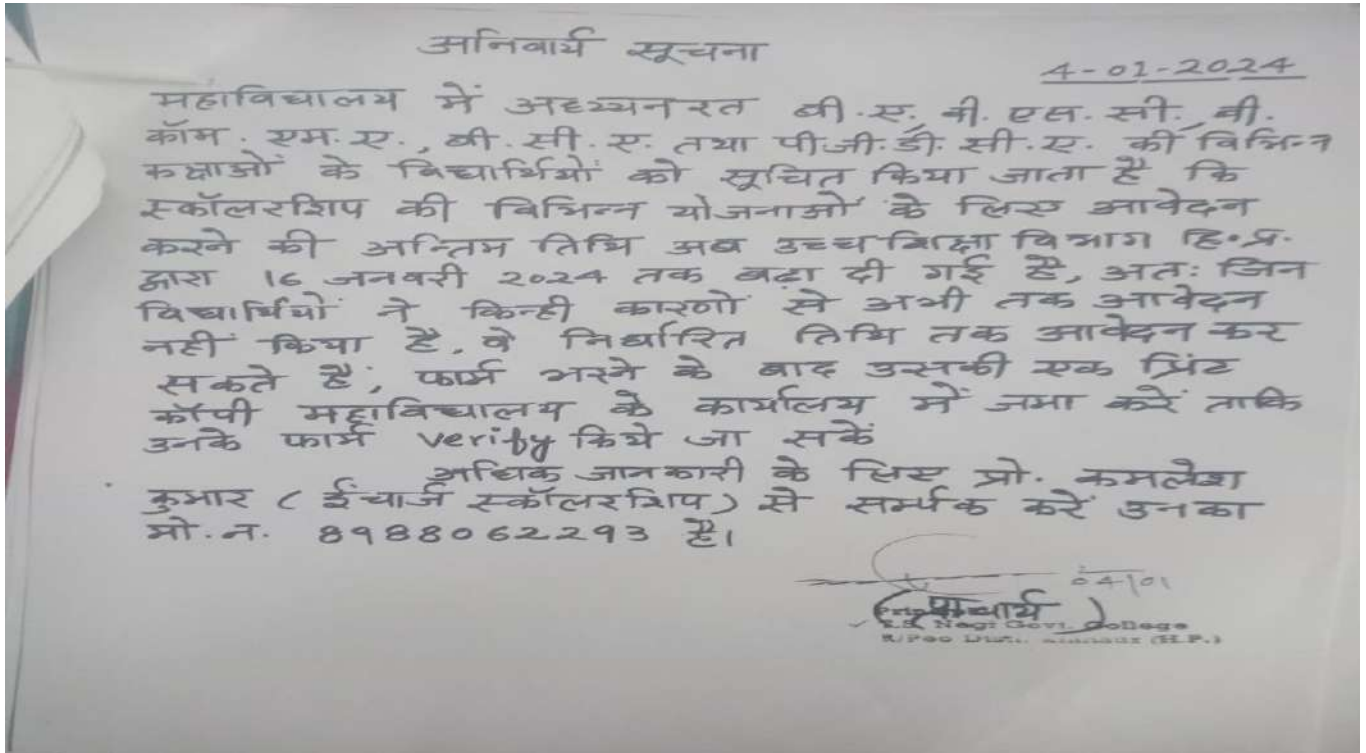 अनिवार्य सूचना
4-01-2024
महाविद्यालय में अध्ययनरत बी.ए., बी.एस.सी., बी.
कॉम. एम.ए., बी.सी.ए. तथा पी.जी.डी.सी.ए. की विभिन्न
कक्षाओं के विद्यार्थियों को सूचित किया जाता है कि
स्कॉलरशिप की विभिन्न योजनाओं के लिए आवेदन
करने की अन्तिम तिथि अब उच्च शिक्षा विभाग हि.प्र.
द्वारा 16 जनवरी 2024 तक बढ़ा दी गई है, अतः जिन
विद्यार्थियों ने किन्ही कारणों से अभी तक आवेदन
नहीं किया है, वे निर्धारित तिथि तक आवेदन कर
सकते हैं, फार्म भरने के बाद उसकी एक प्रिंट
कॉपी महाविद्यालय के कार्यालय में जमा करें ताकि
उनके फार्म verify किये जा सकें
अधिक जानकारी के लिए प्रो. कमलेश
कुमार (ईंचार्ज स्कॉलरशिप) से सर्म्पक करें उनका
मो.न. 8988062293 है।
04/01
(प्राचार्य)
Negi Govt. College
R/Peo Distt. (H.P.)